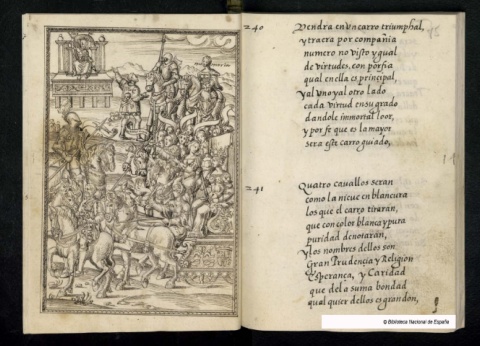 240
Vendra en un carro triumphal,
y traera por compañia
numero no visto y qual
de virtudes, con porfia
qual en ella es principal,
y al uno y al otro lado
cada virtud en su grado
dandole immortal loor,
y por fe que es la mayor
sera este carro guiado,
241
Quatro cavallos seran
como la nieue en blancura
los que el carro tiraran,
que con color blanca y pura
puridad denotaran,
y los nombres dellos son
Gran Prudencia y Religion
Esperança, y Caridad
que de la suma bondad
qual quier dellos es grandon,
© Biblioteca Nacional de España